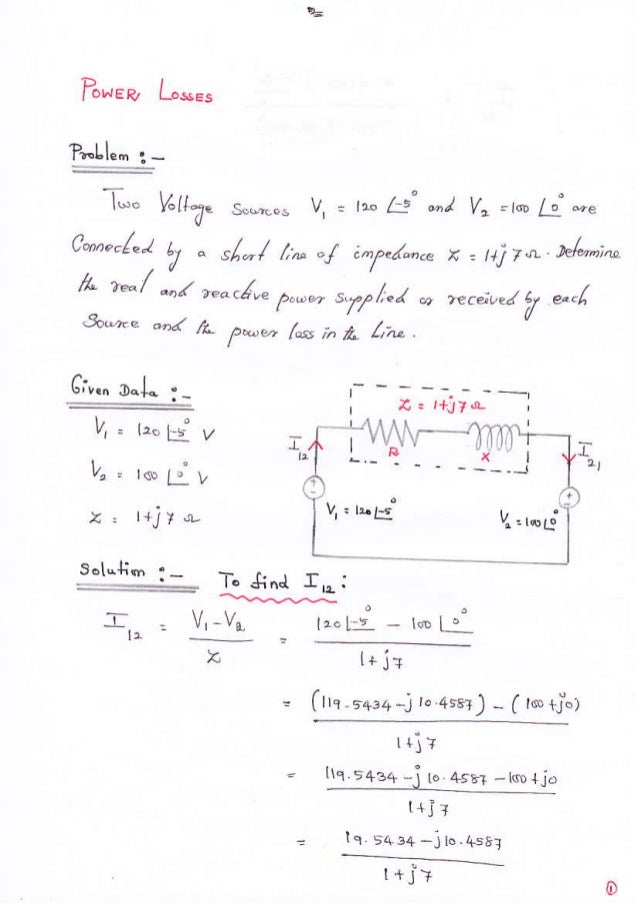 POWER LOSSES
Problem :-
Two Voltage Sources V₁ = 120 ∠-5° and V₂ = 100 ∠0° are
Connected by a short line of impedance Z = 1+j7Ω. Determine
the real and reactive power supplied or received by each
Source and the power loss in the Line.
Given Data :-
V₁ = 120 ∠-5° V
V₂ = 100 ∠0° V
Z = 1+j7 Ω
Z = 1+j7Ω
R
X
I₁₂
I₂₁
V₁ = 120∠-5°
V₂ = 100∠0°
Solution :- To find I₁₂ :
I₁₂ = (V₁ - V₂) / Z = (120∠-5° - 100∠0°) / (1+j7)
= ((119.5434 - j10.4587) - (100 + j0)) / (1+j7)
= (119.5434 - j10.4587 - 100 + j0) / (1+j7)
= (19.5434 - j10.4587) / (1+j7)
1